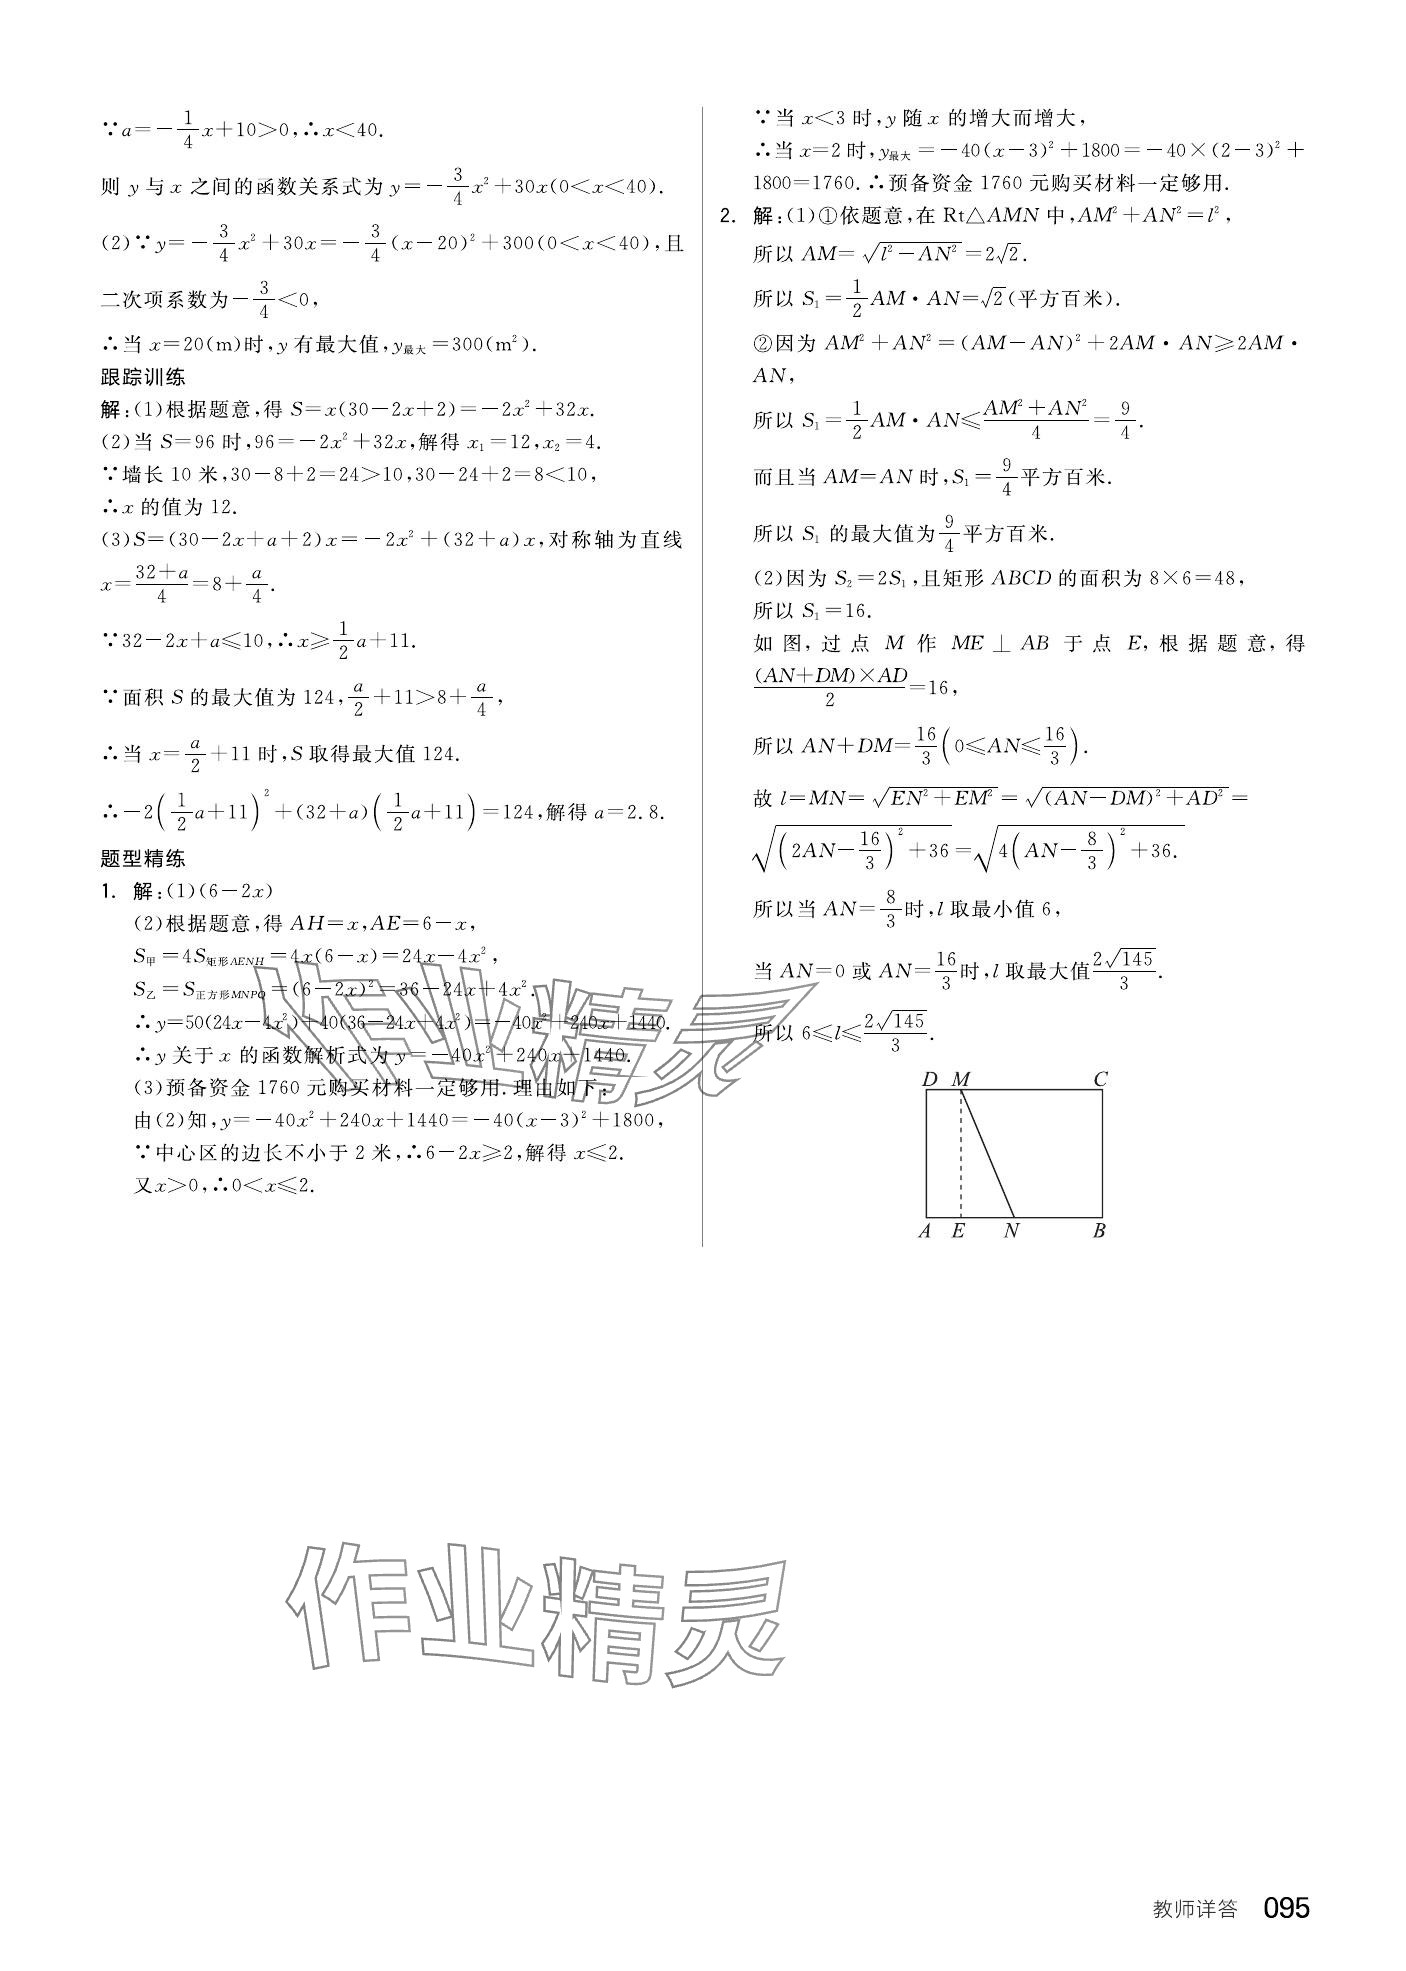 ∵a=-1/4x+10>0,∴x<40.
则 y 与 x 之间的函数关系式为 y=-3/4x²+30x(0<x<40).
(2)∵y=-3/4x²+30x=-3/4(x-20)²+300(0<x<40),且
二次项系数为-3/4<0,
∴当 x=20(m)时,y 有最大值,y最大=300(m²).
跟踪训练
解:(1)根据题意,得 S=x(30-2x+2)=-2x²+32x.
(2)当 S=96 时,96=-2x²+32x,解得 x₁=12,x₂=4.
∵墙长 10 米,30-8+2=24>10,30-24+2=8<10,
∴x 的值为 12.
(3)S=(30-2x+a+2)x=-2x²+(32+a)x,对称轴为直线
x=(32+a)/4=8+a/4.
∵32-2x+a≤10,∴x≥1/2a+11.
∵面积 S 的最大值为 124,a/2+11>8+a/4,
∴当 x=a/2+11 时,S 取得最大值 124.
∴-2(1/2a+11)²+(32+a)(1/2a+11)=124,解得 a=2.8.
题型精练
1. 解:(1)(6-2x)
(2)根据题意,得 AH=x,AE=6-x,
S甲=4S矩形AENH=4x(6-x)=24x-4x²,
S乙=S正方形MNPQ=(6-2x)²=36-24x+4x².
∴y=50(24x-4x²)+40(36-24x+4x²)=-40x²+240x+1440.
∴y 关于 x 的函数解析式为 y=-40x²+240x+1440.
(3)预备资金 1760 元购买材料一定够用.理由如下:
由(2)知,y=-40x²+240x+1440=-40(x-3)²+1800,
∵中心区的边长不小于 2 米,∴6-2x≥2,解得 x≤2.
又x>0,∴0<x≤2.
∵当 x<3 时,y 随 x 的增大而增大,
∴当 x=2 时,y最大=-40(x-3)²+1800=-40×(2-3)²+
1800=1760.∴预备资金 1760 元购买材料一定够用.
2. 解:(1)①依题意,在 Rt△AMN 中,AM²+AN²=l²,
所以 AM=√(l²-AN²)=2√2.
所以 S₁=1/2AM·AN=√2(平方百米).
②因为 AM²+AN²=(AM-AN)²+2AM·AN≥2AM·
AN,
所以 S₁=1/2AM·AN≤(AM²+AN²)/4=9/4.
而且当 AM=AN 时,S₁=9/4平方百米.
所以 S₁ 的最大值为9/4平方百米.
(2)因为 S₂=2S₁,且矩形 ABCD 的面积为 8×6=48,
所以 S₁=16.
如图,过点 M 作 ME⊥AB 于点 E,根据题意,得
(AN+DM)×AD/2=16,
所以 AN+DM=16/3(0≤AN≤16/3).
故 l=MN=√(EN²+EM²)=√((AN-DM)²+AD²)=
√((2AN-16/3)²+36)=√(4(AN-8/3)²+36).
所以当 AN=8/3时,l 取最小值 6,
当 AN=0 或 AN=16/3时,l 取最大值2√145/3.
所以 6≤l≤2√145/3.
D M C
A E N B
作业精灵
作业精灵
教师详答 095